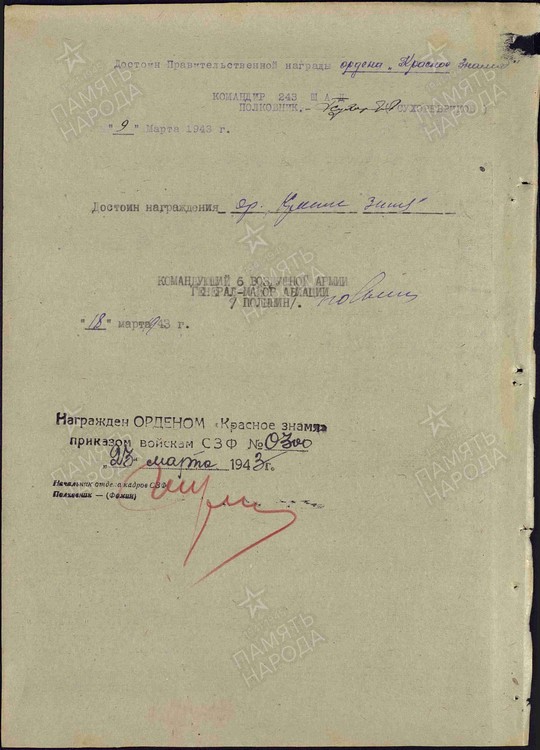 Достоен Правительственной награды ордена „Красное Знамя"
КОМАНДИР 243 Ш А Д
ПОЛКОВНИК.- СУХОРЕБРИКОВ
"9" Марта 1943 г.
Достоин награждения ор. „Красное Знамя"
КОМАНДУЮЩИЙ 6 ВОЗДУШНОЙ АРМИИ
ГЕНЕРАЛ-МАЙОР АВИАЦИИ
/ ПОЛЫНИН/.
"18" марта 43 г.
Награжден ОРДЕНОМ «Красное знамя»
приказом войскам СЗФ № 0300
„23" марта 1943 г.
Начальник отдела кадров СЗФ
Полковник — (Фомин)
ПАМЯТЬ НАРОДА
ПАМЯТЬ НАРОДА
ПАМЯТЬ НАРОДА
ПАМЯТЬ НАРОДА
ПАМЯТЬ НАРОДА
ПАМЯТЬ НАРОДА
ПАМЯТЬ НАРОДА
ПАМЯТЬ НАРОДА